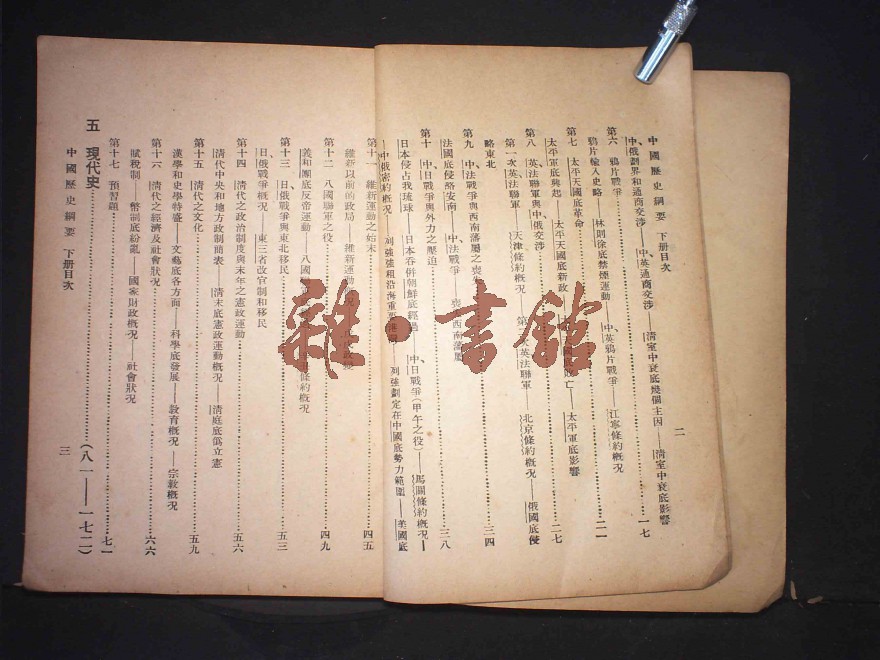 中國歷史綱要 下册目次
二
中俄劃界和通商交涉——中英通商交涉——清室中衰底幾個主因——清室中衰底影響
第六 鴉片戰爭……一七
鴉片輸入史略——林則徐底禁煙運動——中英鴉片戰爭——江寧條約概况
第七 太平天國底革命……二一
太平軍底興起——太平天國底新政——亡——太平軍底影響
第八 英法聯軍與中俄交涉……二七
第一次英法聯軍——天津條約概况——第二次英法聯軍——北京條約概况——俄國底侵
略東北
第九 中法戰爭與西南藩屬之喪失……三四
法國底侵略安南——中法戰爭——喪失西南藩屬
第十 中日戰爭與外力之壓迫……三八
日本侵占我琉球——日本吞併朝鮮底經過——中日戰爭（甲午之役）——馬關條約概况——
中俄密約概况——列強強租沿海重要——列強劃定在中國底勢力範圍——美國底
第十一 維新運動之始末……四五
維新以前的政局——維新運動
第十二 八國聯軍之役……四九
義和團底反帝運動——八國——條約概况
第十三 日俄戰爭與東北移民……五三
日俄戰爭概况——東三省改官制和移民
第十四 清代之政治制度與末年之憲政運動……五六
清代中央和地方政制簡表——清末底憲政運動概况——清庭底僞立憲
第十五 清代之文化……五九
漢學和史學特盛——文藝底各方面——科學底發展——教育概况——宗教概况
第十六 清代之經濟及社會狀况……六六
賦稅制——幣制底紛亂——國家財政概况——社會狀况
第十七 預習題……七一
五 現代史……（八一——一七二）
中國歷史綱要 下册目次
三
雜·書館